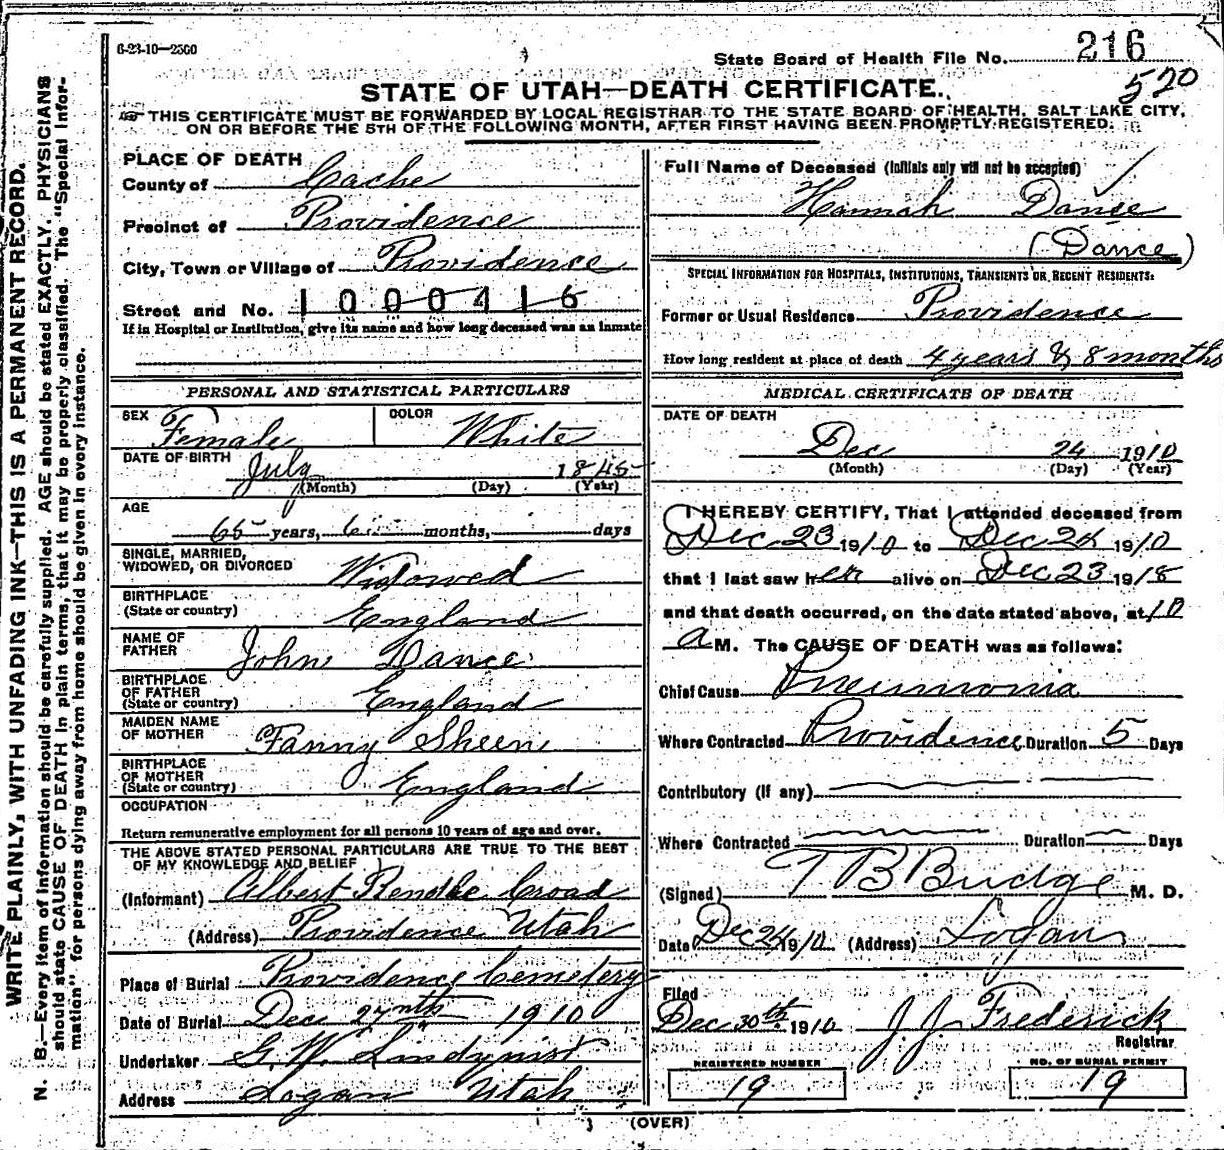 6-23-10—2500
State Board of Health File No. 216
520
STATE OF UTAH—DEATH CERTIFICATE.
THIS CERTIFICATE MUST BE FORWARDED BY LOCAL REGISTRAR TO THE STATE BOARD OF HEALTH, SALT LAKE CITY,
ON OR BEFORE THE 5TH OF THE FOLLOWING MONTH, AFTER FIRST HAVING BEEN PROMPTLY REGISTERED.
WRITE PLAINLY, WITH UNFADING INK—THIS IS A PERMANENT RECORD.
N. B.—Every item of information should be carefully supplied. AGE should be stated EXACTLY. PHYSICIANS
should state CAUSE OF DEATH in plain terms, that it may be properly classified. The "Special Infor-
mation" for persons dying away from home should be given in every instance.
PLACE OF DEATH
County of Cache
Precinct of Providence
City, Town or Village of Providence
Street and No. 1000416
If in Hospital or Institution, give its name and how long deceased was an inmate
PERSONAL AND STATISTICAL PARTICULARS
SEX Female COLOR White
DATE OF BIRTH July 1845
(Month) (Day) (Year)
AGE
65 years, 6 months, days
SINGLE, MARRIED,
WIDOWED, OR DIVORCED Widowed
BIRTHPLACE
(State or country) England
NAME OF
FATHER John Dance
BIRTHPLACE
OF FATHER
(State or country) England
MAIDEN NAME
OF MOTHER Fanny Sheen
BIRTHPLACE
OF MOTHER
(State or country) England
OCCUPATION
Return remunerative employment for all persons 10 years of age and over.
THE ABOVE STATED PERSONAL PARTICULARS ARE TRUE TO THE BEST
OF MY KNOWLEDGE AND BELIEF
(Informant) Albert
(Address) Providence Utah
Place of Burial Providence Cemetery
Date of Burial Dec 27nth 1910
Undertaker G. W. Lindquist
Address Logan Utah
Full Name of Deceased (Initials only will not be accepted)
Hannah Danse
(Dance)
SPECIAL INFORMATION FOR HOSPITALS, INSTITUTIONS, TRANSIENTS OR RECENT RESIDENTS:
Former or Usual Residence Providence
How long resident at place of death 4 years & 8 months
MEDICAL CERTIFICATE OF DEATH
DATE OF DEATH
Dec 24 1910
(Month) (Day) (Year)
I HEREBY CERTIFY, That I attended deceased from
Dec 23 1910 to Dec 24 1910
that I last saw her alive on Dec 23 1910
and that death occurred, on the date stated above, at 10
a M. The CAUSE OF DEATH was as follows:
Chief Cause Pneumonia
Where Contracted Providence Duration 5 Days
Contributory (if any)
Where Contracted Duration Days
(Signed) T B Budge M. D.
Date Dec 24 1910 (Address) Logan
Filed
Dec 30th 1910 J. J. Frederick
Registrar
REGISTERED NUMBER NO. OF BURIAL PERMIT
19 19
(OVER)